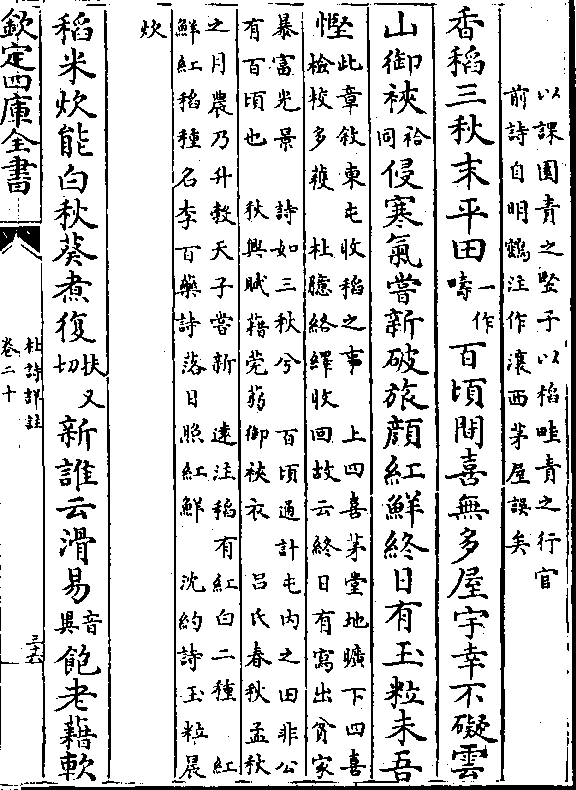 以課園責之豎子以稻畦責之行官
前詩自明鶴注作瀼西茅屋誤矣
香稻三秋末平田一作疇百頃間喜無多屋宇幸不礙雲
山御裌袷同侵寒氣嘗新破旅顏紅鮮終日有玉粒未吾
慳此章敘東屯收稻之事 上四喜茅堂地曠下四喜
檢校多穫 杜臆絡繹收回故云終日有寫出貧家
暴富光景 詩如三秋兮 百頃通計屯内之田非公
有百頃也 秋興賦藉莞蒻御裌衣 吕氏春秋孟秋
之月農乃升穀天子嘗新 遠注稻有紅白二種 紅
鮮紅稻種名李百藥詩落日照紅鮮 沈約詩玉粒晨
炊
稻米炊能白秋葵煮復扶又切新誰云滑易音異飽老藉軟
欽定四庫全書
杜詩詳註
卷二十
三六